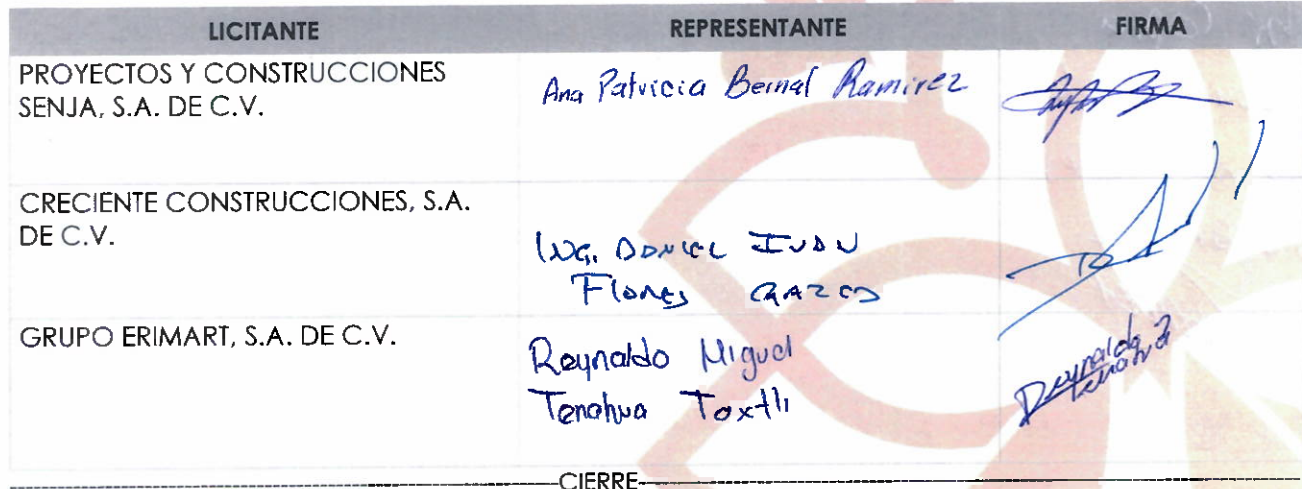 LICITANTE REPRESENTANTE FIRMA
PROYECTOS Y CONSTRUCCIONES
SENJA, S.A. DE C.V.
Ana Patricia Bernal Ramirez
CRECIENTE CONSTRUCCIONES, S.A.
DE C.V.
ING. DANIEL IVAN
Flores
GRUPO ERIMART, S.A. DE C.V.
Reynaldo Miguel
Tenahua Toxtli
Reynaldo
Tenahua
CIERRE